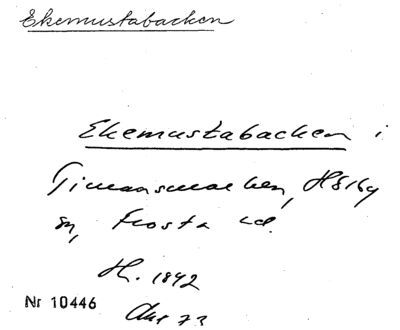 Ekemustabacken
Ekemustabacken i
Timansmarken, Hsby
sn, Frosta hd.
H. 1892
Nr 10446